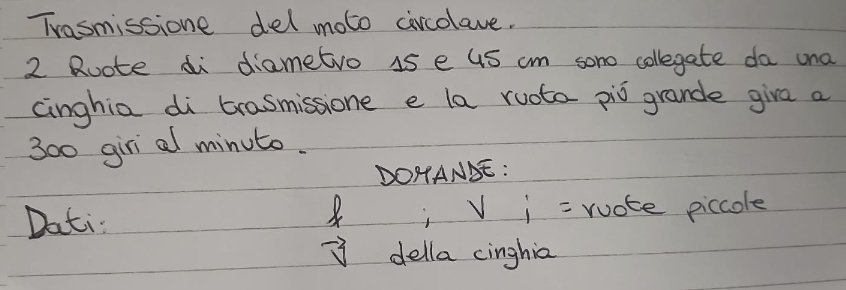 Trasmissione del moto circolare.
2 Ruote di diametro 15 e 45 cm sono collegate da una
cinghia di trasmissione e la ruota più grande gira a
300 giri al minuto.
DOMANDE:
Dati: f ; V ; = ruote piccole
V⃗ della cinghia